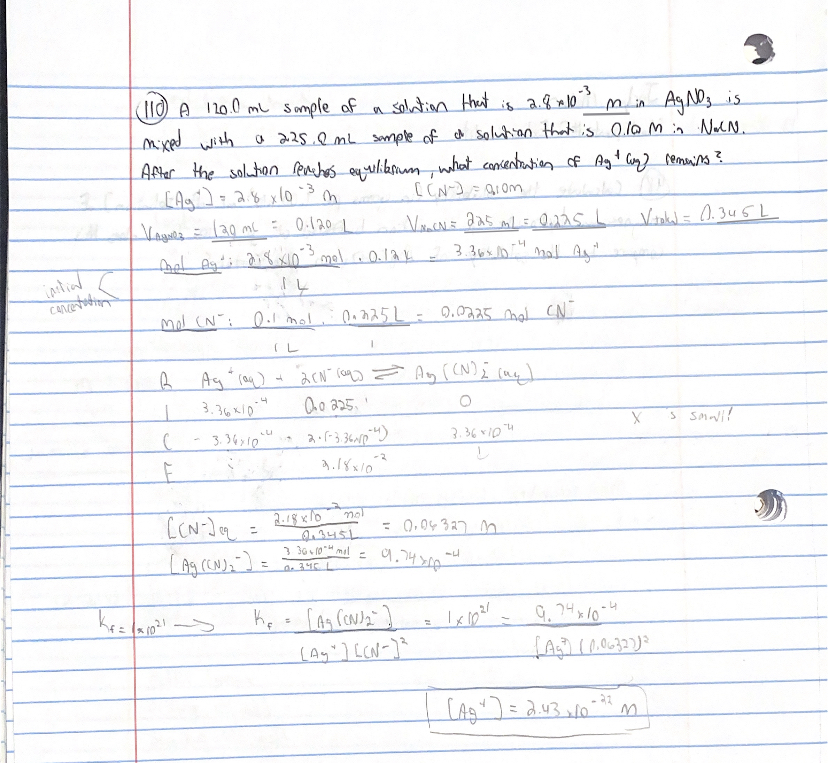 (110) A 120.0 mL sample of a solution that is 2.8×10⁻³ M in AgNO₃ is
mixed with a 225.0 mL sample of a solution that is 0.10 M in NaCN.
After the solution reaches equilibrium, what concentration of Ag⁺(aq) remains?
[Ag⁺] = 2.8×10⁻³ M [CN⁻] = 0.10M
V AgNO₃ = 120 mL = 0.120 L V NaCN = 225 mL = 0.225 L V total = 0.345 L
mol Ag⁺: 2.8×10⁻³ mol · 0.12 L = 3.36×10⁻⁴ mol Ag⁺
1 L
initial concentration <
mol CN⁻: 0.1 mol · 0.225 L = 0.0225 mol CN⁻
1 L 1
R Ag⁺(aq) + 2CN⁻(aq) ⇌ Ag(CN)₂⁻(aq)
I 3.36×10⁻⁴ 0.0225 0
C - 3.36×10⁻⁴ 2·(-3.36×10⁻⁴) 3.36×10⁻⁴ X is small!
E 2.18×10⁻²
[CN⁻]eq = 2.18×10⁻² mol / 0.345 L = 0.06327 M
[Ag(CN)₂⁻] = 3.36×10⁻⁴ mol / 0.345 L = 9.74×10⁻⁴
Kf = 1×10²¹ → Kf = [Ag(CN)₂⁻] / [Ag⁺][CN⁻]² = 1×10²¹ = 9.74×10⁻⁴ / [Ag⁺](0.06327)²
[Ag⁺] = 2.43×10⁻²² M